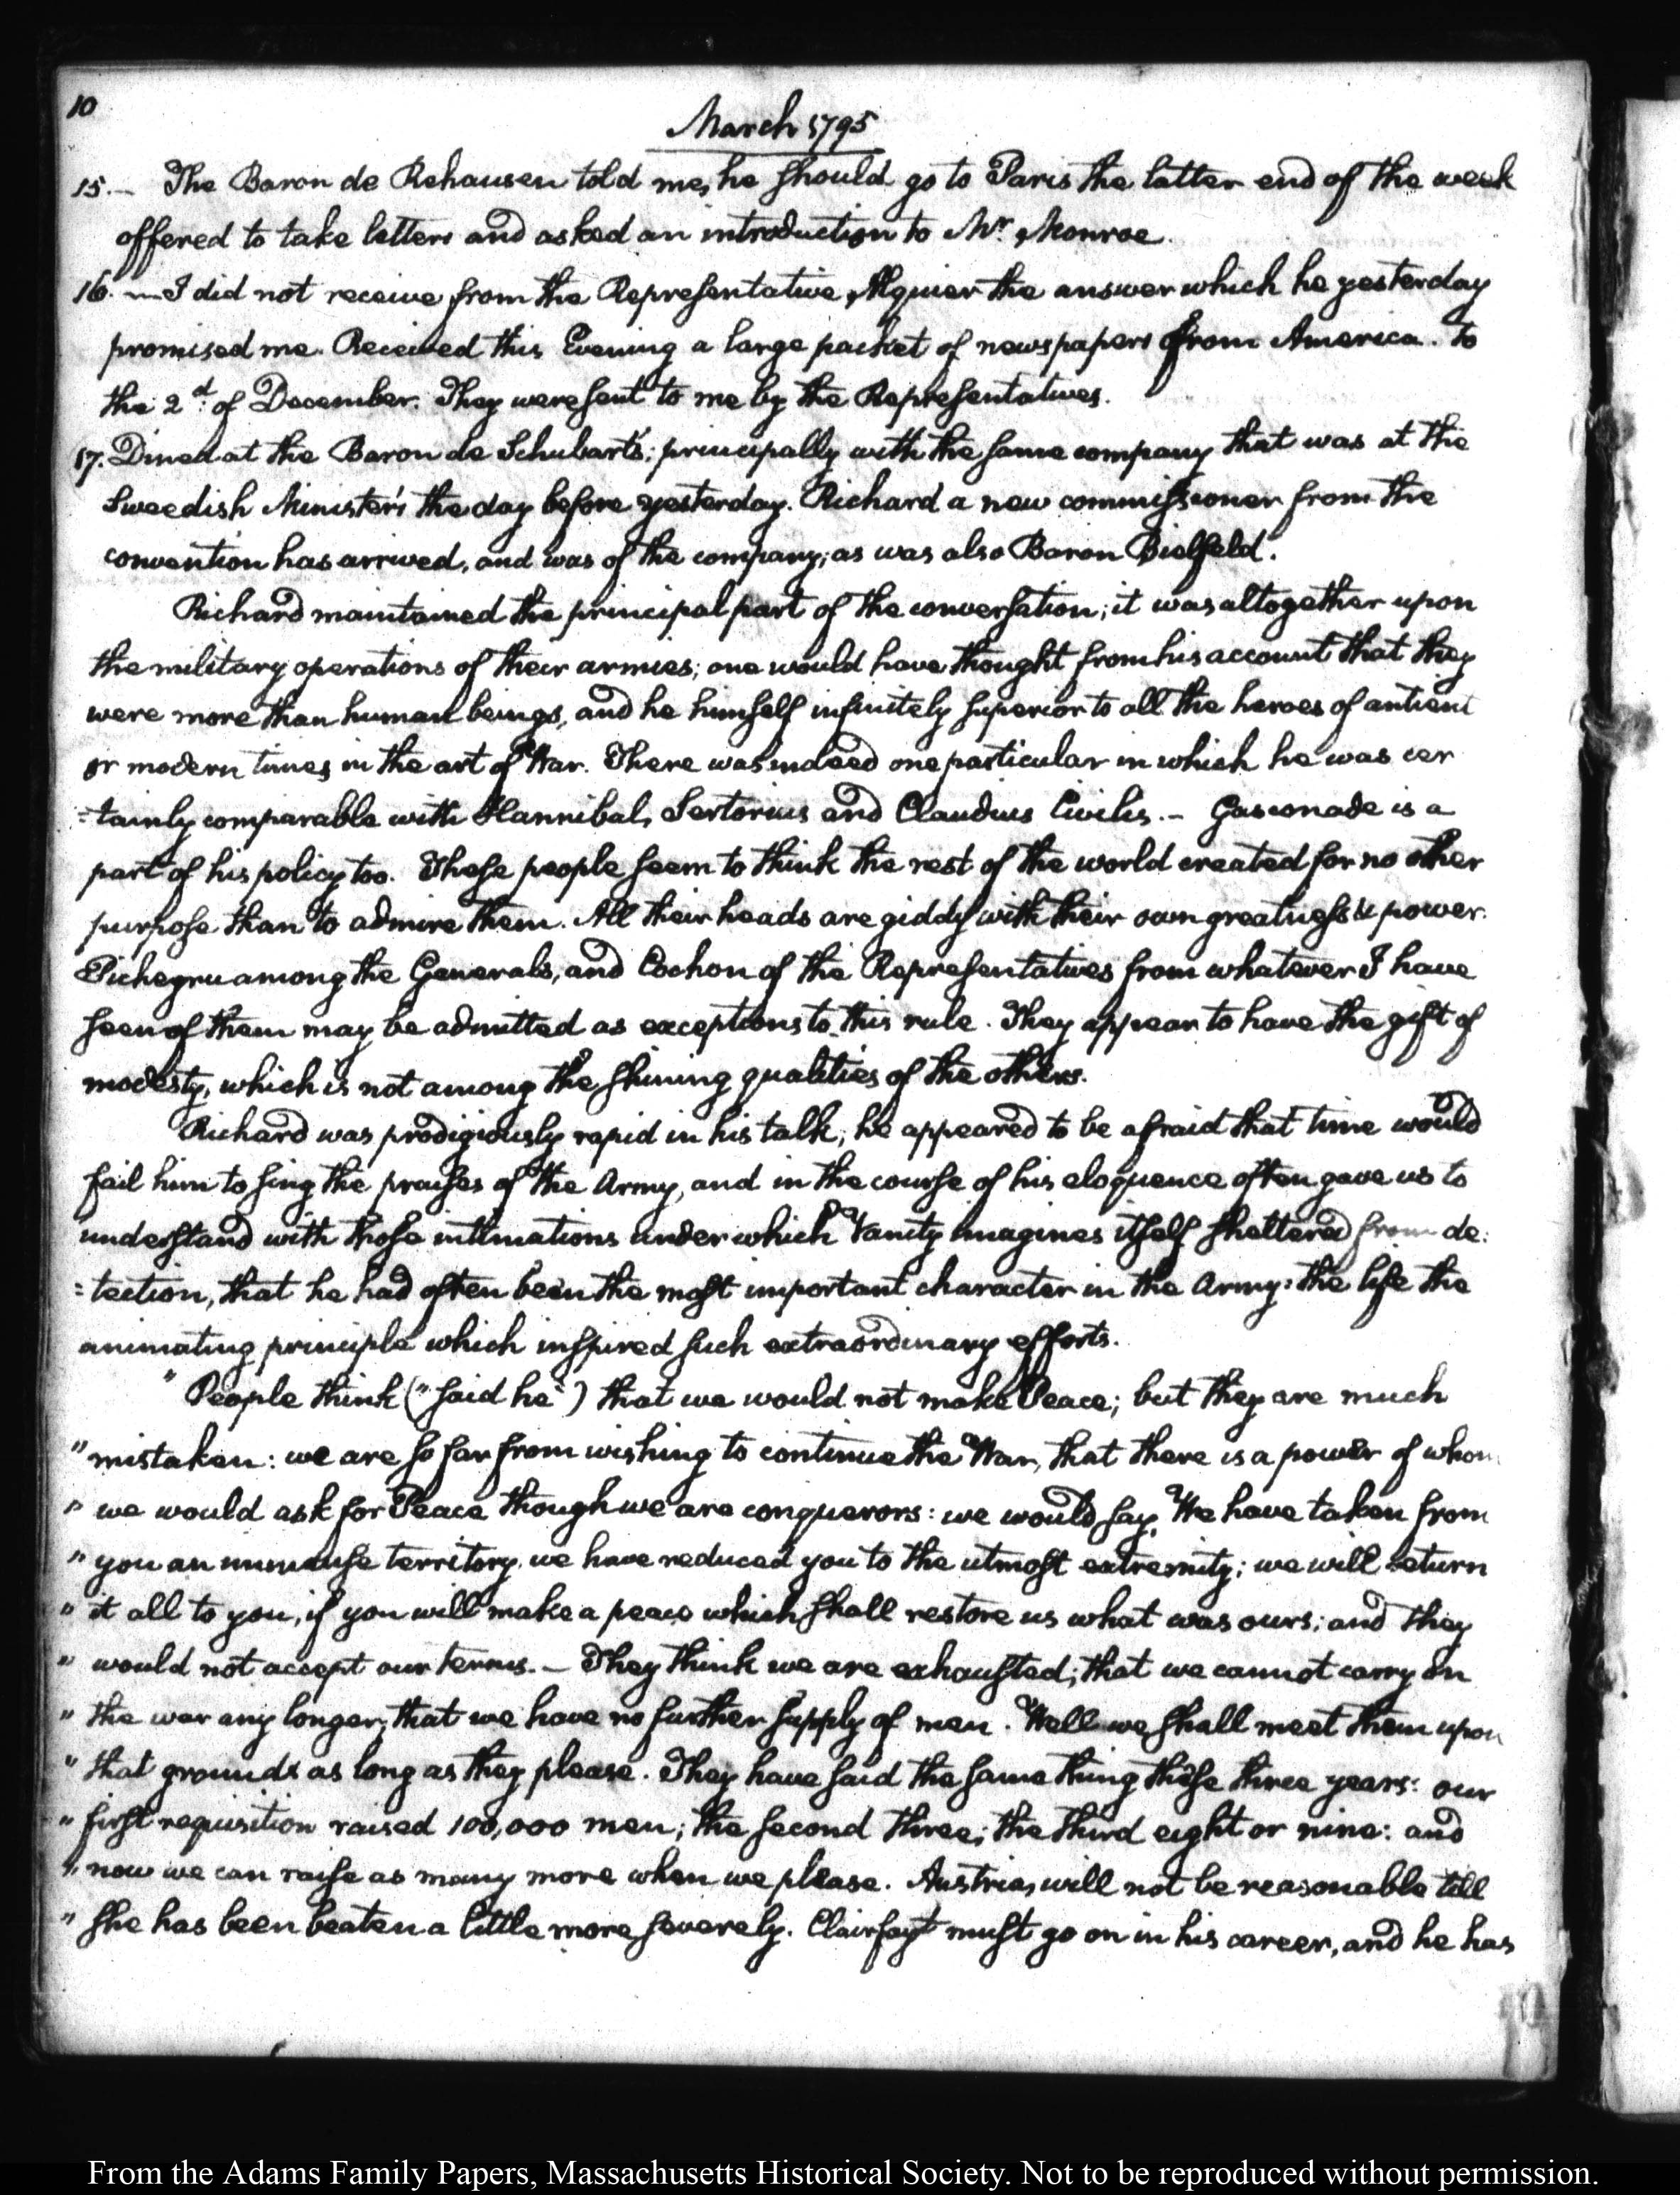 10
March 1795
15. — The Baron de Rehausen told me, he should go to Paris the latter end of the week
offered to take letters and asked an introduction to Mr. Monroe.
16. — I did not receive from the Representative Alquier the answer which he yesterday
promised me. Received this Evening a large packet of newspapers from America. To
the 2d. of December. They were sent to me by the Representatives.
17. Dined at the Baron de Schubart's; principally with the same company that was at the
Sweedish Minister's the day before yesterday. Richard a new commissioner from the
convention has arrived, and was of the company; as was also Baron Bielfeld.
Richard maintained the principal part of the conversation; it was altogether upon
the military operations of their armies; one would have thought from his account that they
were more than human beings, and he himself infinitely superior to all the heroes of antient
or modern times in the art of War. There was indeed one particular in which he was cer
=tainly comparable with Hannibal, Sertorius and Claudius Civilis. — Gasconade is a
part of his policy too. These people seem to think the rest of the world created for no other
purpose than to admire them. All their heads are giddy with their own greatness & power.
Pichegru among the Generals, and Cochon of the Representatives from whatever I have
seen of them may be admitted as exceptions to this rule. They appear to have the gift of
modesty, which is not among the shining qualities of the others.
Richard was prodigiously rapid in his talk; he appeared to be afraid that time would
fail him to sing the praises of the Army, and in the course of his eloquence often gave us to
understand with those intimations under which Vanity imagines itself sheltered from de:
=tection, that he had often been the most important character in the Army: the life the
animating principle which inspired such extraordinary efforts.
" People think (" said he ") that we would not make Peace; but they are much
" mistaken: we are so far from wishing to continue the War, that there is a power of whom
" we would ask for Peace though we are conquerors: we would say, We have taken from
" you an immense territory, we have reduced you to the utmost extremity; we will return
" it all to you, if you will make a peace which shall restore us what was ours; and they
" would not accept our terms. — They think we are exhausted; that we cannot carry on
" the war any longer; that we have no further supply of men. Well we shall meet them upon
" that grounds as long as they please. They have said the same thing these three years: our
" first requisition raised 100,000 men; the second three; the third eight or nine: and
" now we can raise as many more when we please. Austria, will not be reasonable till
" she has been beaten a little more severely. Clairfayt must go on in his career, and he has
From the Adams Family Papers, Massachusetts Historical Society. Not to be reproduced without permission.